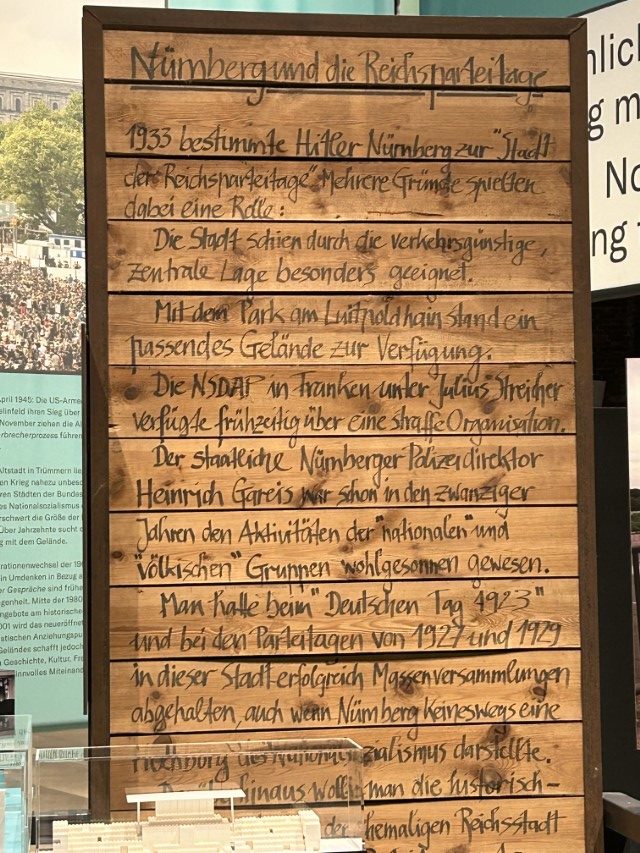 Nürnberg und die Reichsparteitage
1933 bestimmte Hitler Nürnberg zur "Stadt
der Reichsparteitage". Mehrere Gründe spielten
dabei eine Rolle:
Die Stadt schien durch die verkehrsgünstige,
zentrale Lage besonders geeignet.
Mit dem Park am Luitpoldhain stand ein
passendes Gelände zur Verfügung.
Die NSDAP in Franken unter Julius Streicher
verfügte frühzeitig über eine straffe Organisation.
Der staatliche Nürnberger Polizeidirektor
Heinrich Gareis war schon in den zwanziger
Jahren den Aktivitäten der "nationalen" und
"völkischen" Gruppen wohlgesonnen gewesen.
Man hatte beim "Deutschen Tag 1923"
und bei den Parteitagen von 1927 und 1929
in dieser Stadt erfolgreich Massenversammlungen
abgehalten, auch wenn Nürnberg keineswegs eine
Hochburg des Nationalsozialismus darstellte.
hinaus wollte man die historisch-
der ehemaligen Reichsstadt
April 1945: Die US-Armee
elinfeld ihren Sieg über
November ziehen die Al
rbrecherprozess führen
Altstadt in Trümmern lie
en Krieg nahezu unbesc
ren Städten der Bundes
s Nationalsozialismus
rschwert die Größe der
Über Jahrzehnte sucht
g mit dem Gelände.
rationenwechsel der 19
in Umdenken in Bezug a
er Gespräche sind frühe
genheit. Mitte der 1980
ngebote am historischen
001 wird das neueröffnet
atischen Anziehungspu
Geländes schafft jedoch
n Geschichte, Kultur, Fr
innvolles Miteinand
nlich
g m
No
ng